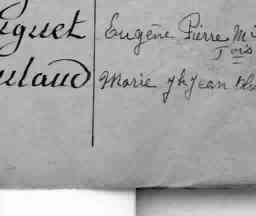 guet Eugène Pierre M
Fois
uland Marie Jh Jean